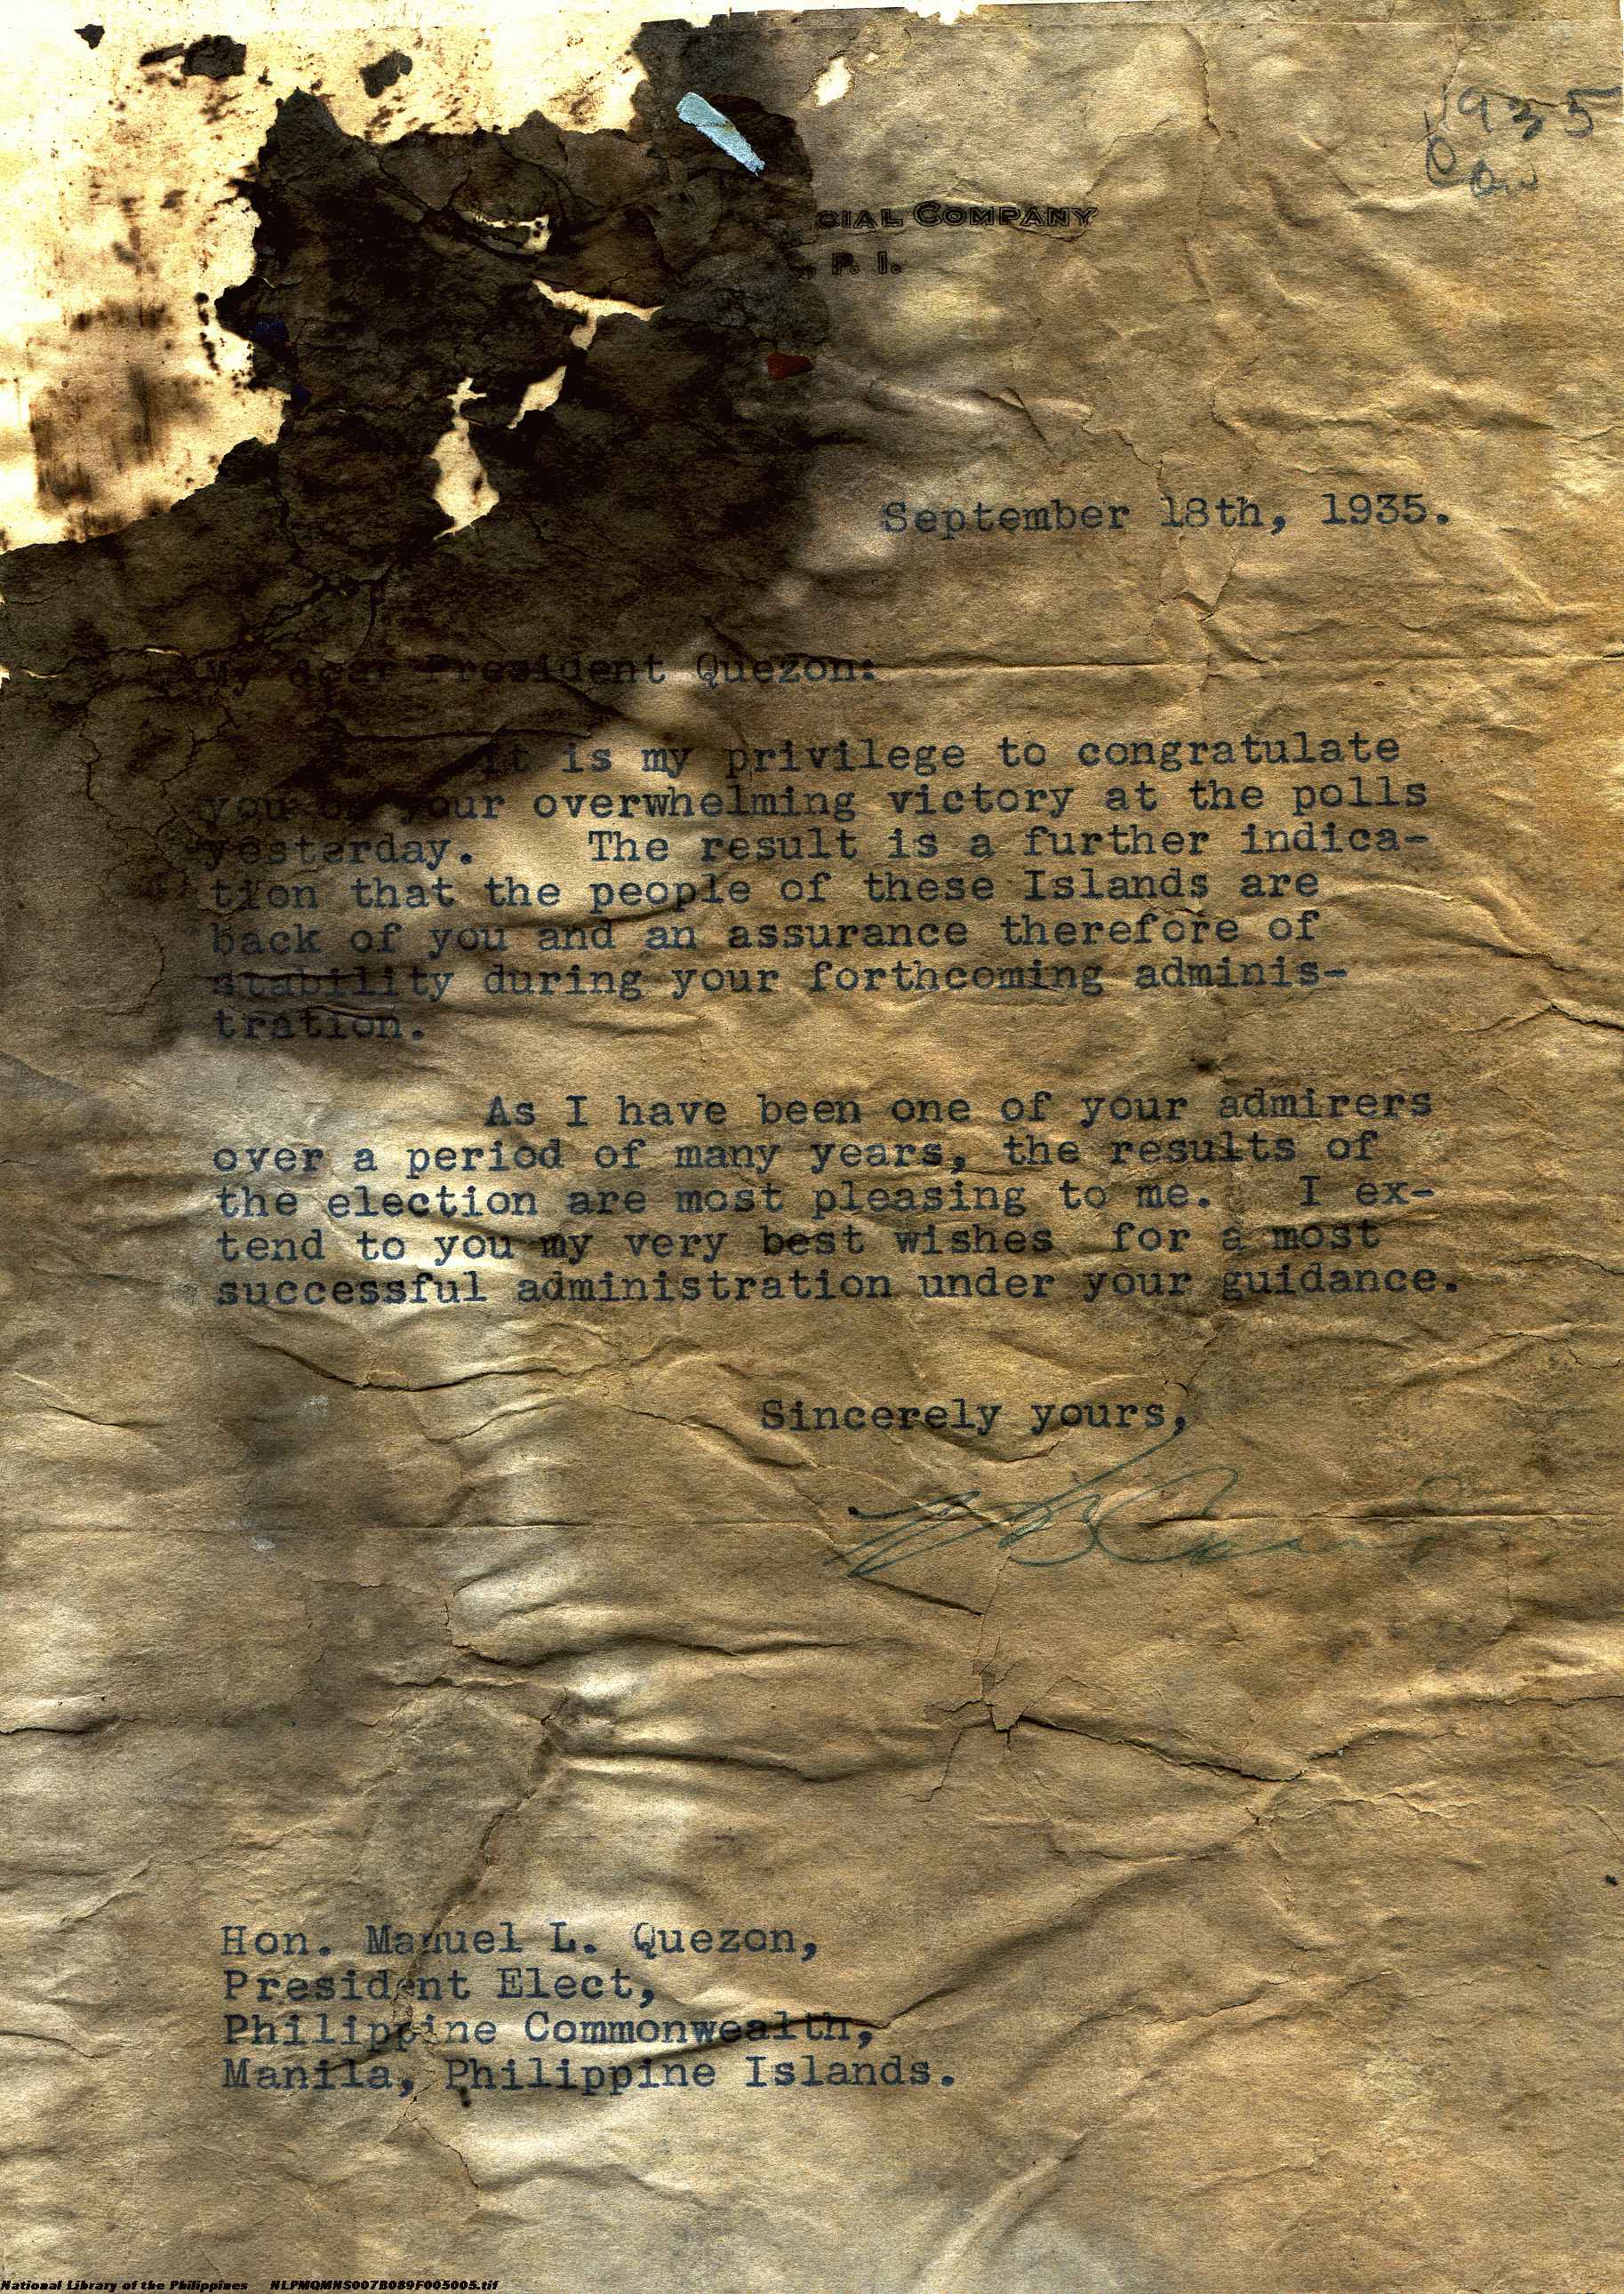 1935
CIAL COMPANY
, P. I.
September 18th, 1935.
My dear President Quezon:
It is my privilege to congratulate
you on your overwhelming victory at the polls
yesterday. The result is a further indica-
tion that the people of these Islands are
back of you and an assurance therefore of
stability during your forthcoming adminis-
tration.
As I have been one of your admirers
over a period of many years, the results of
the election are most pleasing to me. I ex-
tend to you my very best wishes for a most
successful administration under your guidance.
Sincerely yours,
Hon. Manuel L. Quezon,
President Elect,
Philippine Commonwealth,
Manila, Philippine Islands.
National Library of the Philippines NLPMQMNS007B089F005005.tif